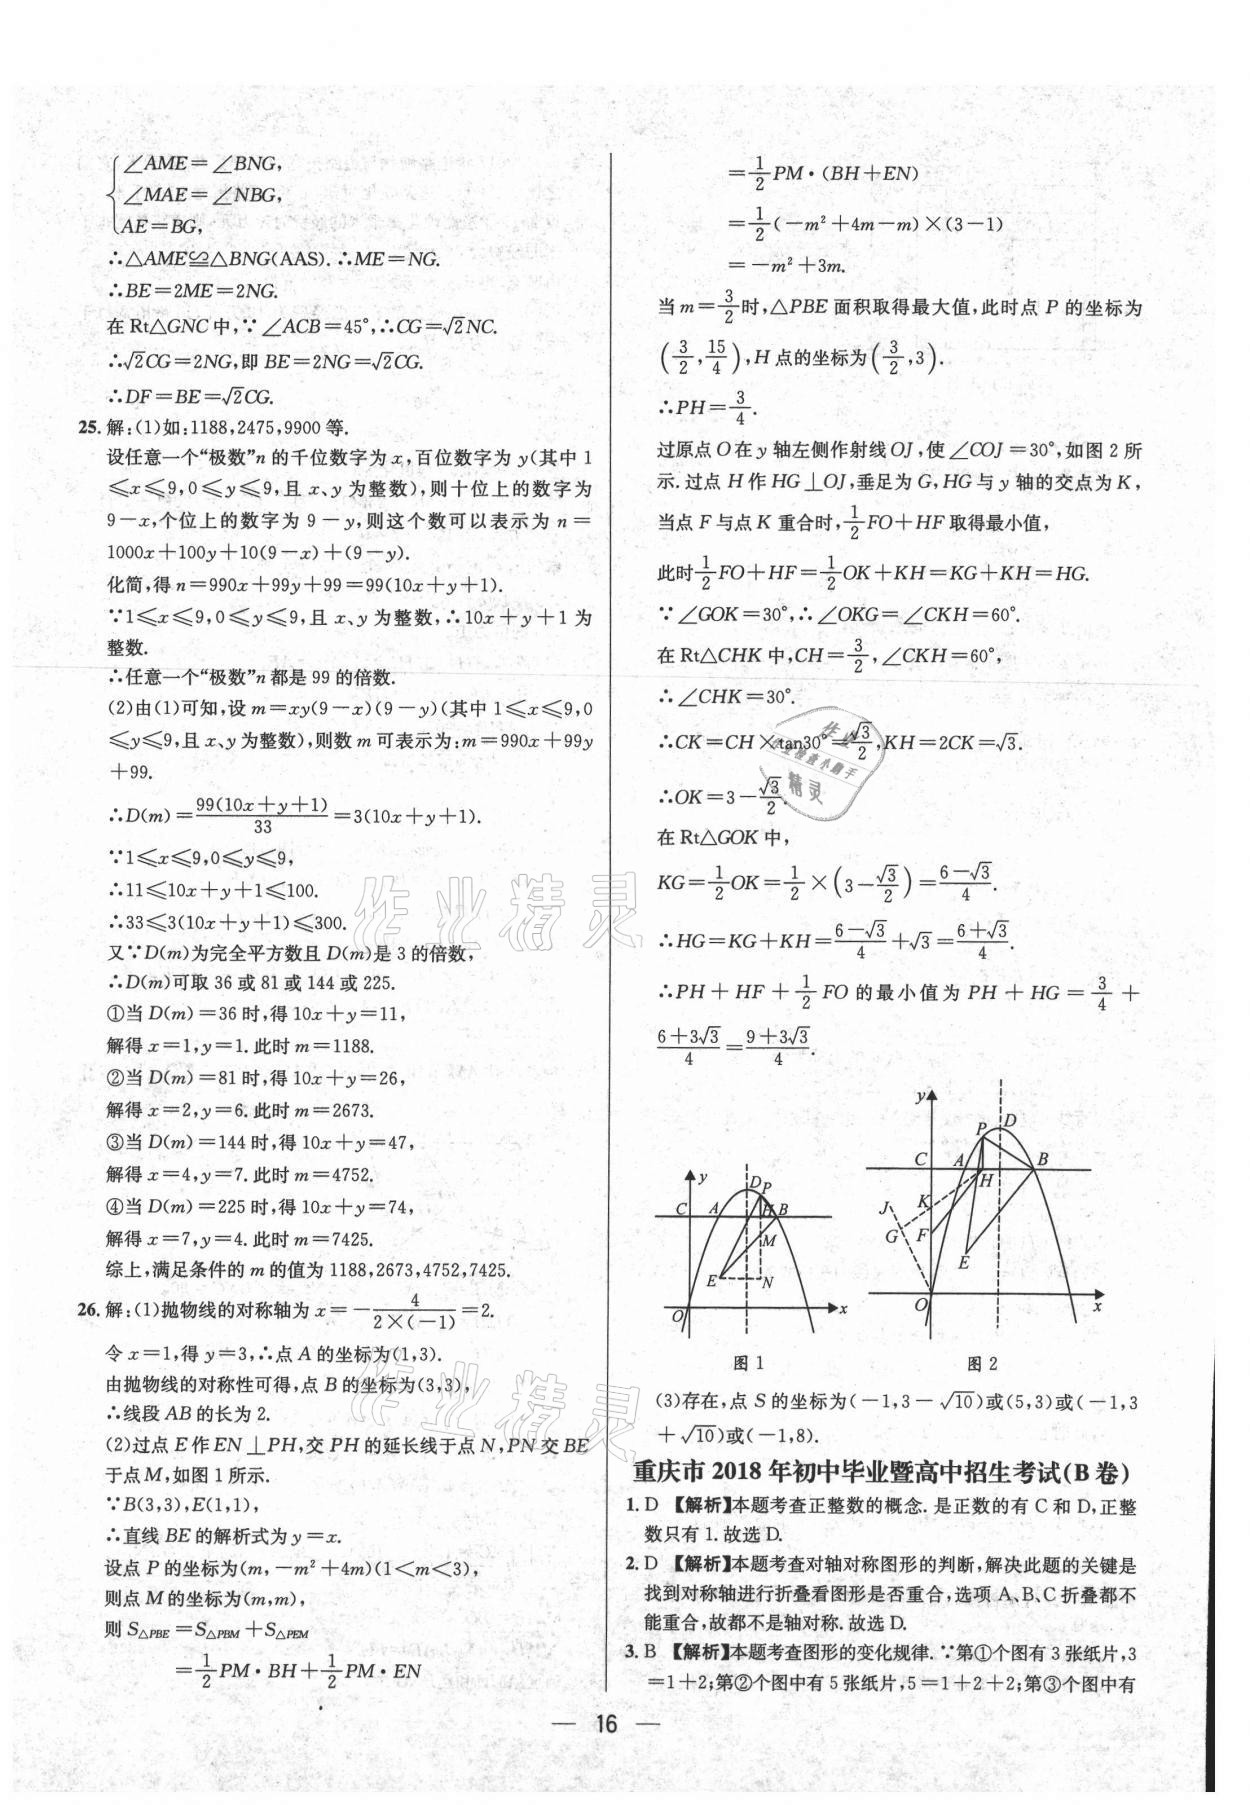 ∠AME=∠BNG,
∠MAE=∠NBG,
AE=BG,
∴△AME≌△BNG(AAS).∴ME=NG.
∴BE=2ME=2NG.
在 Rt△GNC 中,∵∠ACB=45°,∴CG=√2NC.
∴√2CG=2NG,即 BE=2NG=√2CG.
∴DF=BE=√2CG.
25. 解:(1)如:1188,2475,9900 等.
设任意一个“极数”n 的千位数字为 x,百位数字为 y(其中 1
≤x≤9,0≤y≤9,且 x、y 为整数),则十位上的数字为
9-x,个位上的数字为 9-y,则这个数可以表示为 n=
1000x+100y+10(9-x)+(9-y).
化简,得 n=990x+99y+99=99(10x+y+1).
∵1≤x≤9,0≤y≤9,且 x、y 为整数,∴10x+y+1 为
整数.
∴任意一个“极数”n 都是 99 的倍数.
(2)由(1)可知,设 m=xy(9-x)(9-y)(其中 1≤x≤9,0
≤y≤9,且 x、y 为整数),则数 m 可表示为:m=990x+99y
+99.
∴D(m)=99(10x+y+1)/33=3(10x+y+1).
∵1≤x≤9,0≤y≤9,
∴11≤10x+y+1≤100.
∴33≤3(10x+y+1)≤300.
又∵D(m)为完全平方数且 D(m)是 3 的倍数,
∴D(m)可取 36 或 81 或 144 或 225.
①当 D(m)=36 时,得 10x+y=11,
解得 x=1,y=1.此时 m=1188.
②当 D(m)=81 时,得 10x+y=26,
解得 x=2,y=6.此时 m=2673.
③当 D(m)=144 时,得 10x+y=47,
解得 x=4,y=7.此时 m=4752.
④当 D(m)=225 时,得 10x+y=74,
解得 x=7,y=4.此时 m=7425.
综上,满足条件的 m 的值为 1188,2673,4752,7425.
26. 解:(1)抛物线的对称轴为 x=-4/(2×(-1))=2.
令 x=1,得 y=3,∴点 A 的坐标为(1,3).
由抛物线的对称性可得,点 B 的坐标为(3,3),
∴线段 AB 的长为 2.
(2)过点 E 作 EN⊥PH,交 PH 的延长线于点 N,PN 交 BE
于点 M,如图 1 所示.
∵B(3,3),E(1,1),
∴直线 BE 的解析式为 y=x.
设点 P 的坐标为(m,-m²+4m)(1<m<3),
则点 M 的坐标为(m,m),
则 S△PBE=S△PBM+S△PEM
=1/2PM·BH+1/2PM·EN
=1/2PM·(BH+EN)
=1/2(-m²+4m-m)×(3-1)
=-m²+3m.
当 m=3/2时,△PBE 面积取得最大值,此时点 P 的坐标为
(3/2,15/4),H 点的坐标为(3/2,3).
∴PH=3/4.
过原点 O 在 y 轴左侧作射线 OJ,使∠COJ=30°,如图 2 所
示.过点 H 作 HG⊥OJ,垂足为 G,HG 与 y 轴的交点为 K,
当点 F 与点 K 重合时,1/2FO+HF 取得最小值,
此时1/2FO+HF=1/2OK+KH=KG+KH=HG.
∵∠GOK=30°,∴∠OKG=∠CKH=60°.
在 Rt△CHK 中,CH=3/2,∠CKH=60°,
∴∠CHK=30°.
∴CK=CH×tan30°=√3/2,KH=2CK=√3.
∴OK=3-√3/2.
在 Rt△GOK 中,
KG=1/2OK=1/2×(3-√3/2)=(6-√3)/4.
∴HG=KG+KH=(6-√3)/4+√3=(6+√3)/4.
∴PH+HF+1/2FO 的最小值为 PH+HG=3/4+
(6+3√3)/4=(9+3√3)/4.
y D P C A H B M E N O x
图 1
y P D C A B H K J G F E O x
图 2
(3)存在,点 S 的坐标为(-1,3-√10)或(5,3)或(-1,3
+√10)或(-1,8).
重庆市 2018 年初中毕业暨高中招生考试(B 卷)
1. D 【解析】本题考查正整数的概念.是正数的有 C 和 D,正整
数只有 1.故选 D.
2. D 【解析】本题考查对轴对称图形的判断,解决此题的关键是
找到对称轴进行折叠看图形是否重合,选项 A、B、C 折叠都不
能重合,故都不是轴对称.故选 D.
3. B 【解析】本题考查图形的变化规律.∵第①个图有 3 张纸片,3
=1+2;第②个图中有 5 张纸片,5=1+2+2;第③个图中有
— 16 —
作业精灵
作业精灵
作业
作业检查小助手
精灵